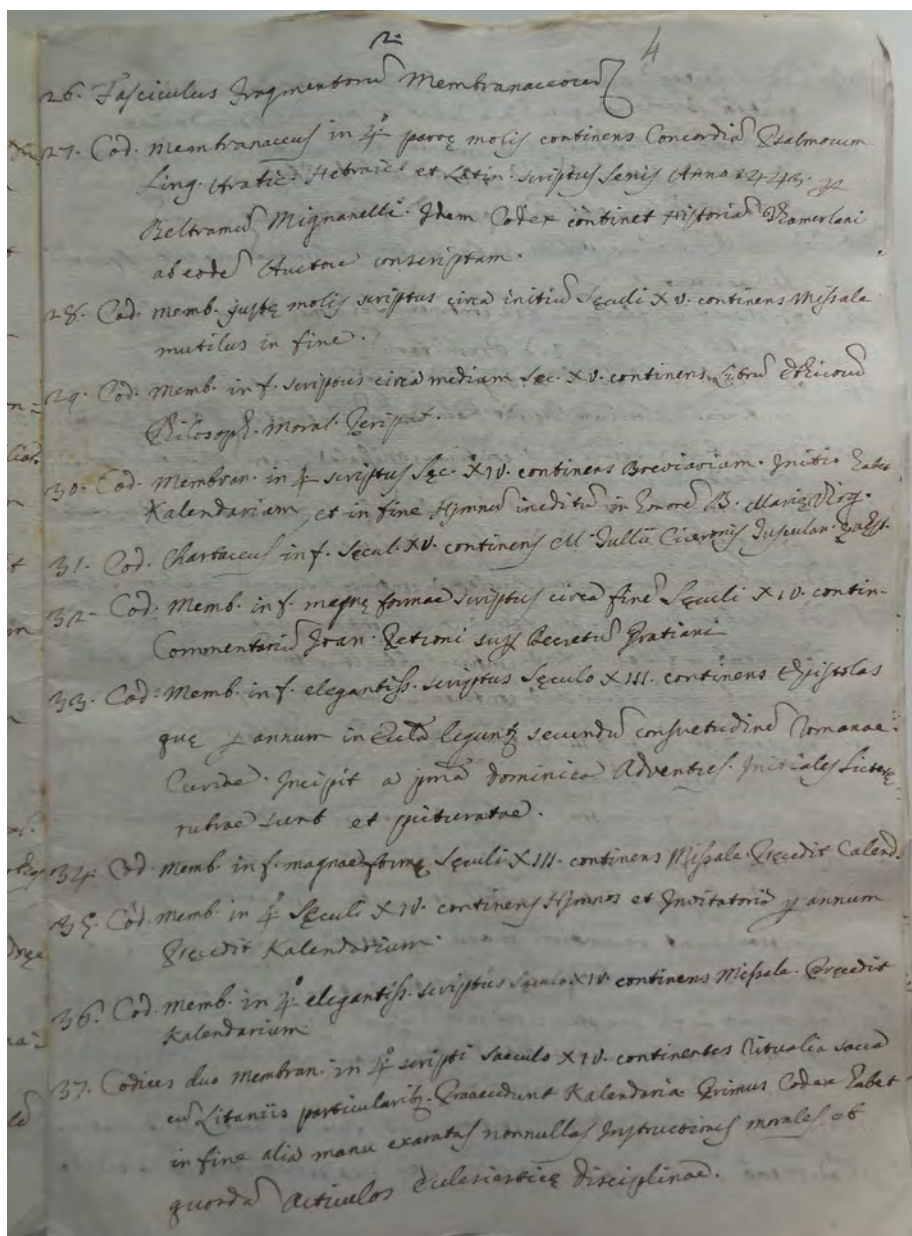 2.
4
26. Fasciculus Fragmentorū Membranaceorū
27. Cod. membranaceus in 4º parvę molis continens Concordiā Psalmorum
Ling. Arabic. Hebraic. et Latin. scriptus Senis Anno
Beltramū Mignanelli. Idem Codex continet Historiā Thamerlani
ab eodē Auctore conscriptam.
28. Cod. memb. justę molis scriptus circa initiū Sęculi XV. continens Missale
mutilus in fine.
29. Cod. Memb. in f. scriptus circa medium Sęc. XV. continens Librū Ethicorū
Philosoph. Moral. Peripat.
30. Cod. Membran. in 4º scriptus Sęc. XIV. continens Breviarium. Initio habet
Kalendarium, et in fine Hymnū ineditū in honorē B. Marię Virg.
31. Cod. Chartaceus in f. Sęcul. XV. continens M. Tullii Ciceronis Tusculan. Quęst.
32. Cod. Memb. in f. magnę formae scriptus circa finē Sęculi XIV. contin-
Commentariū Joan. Decretū Gratiani
33. Cod. Memb. in f. elegantiss. scriptus Sęculo XIII. continens Epistolas
quę p annum in Eccła legunt secundū consuetudinē Romanae
Curiae. Incipit a pma Dominica Adventus. Initiales Litterę
rubrae sunt et picturatae.
34. Cod. Memb. in f. magnae formę Sęculi XIII. continens Missale Pręcedit Calend.
35. Cod. Memb. in 4º Sęculi XIV. continens Hymnos et Invitatoria p annum
Pręcedit Kalendarium.
36. Cod. Memb. in 4º elegantiss. scriptus Sęculo XIV. continens Missale. Pręcedit
Kalendarium
37. Codices duo Membran. in 4º scripti Saeculo XIV. continentes Ritualia sacra
cū Litaniis particularib. Praecedunt Kalendaria. Primus Codex habet
in fine alia manu exaratas nonnullas Instructiones morales, et
quosdā Articulos Ecclesiasticę Disciplinae.